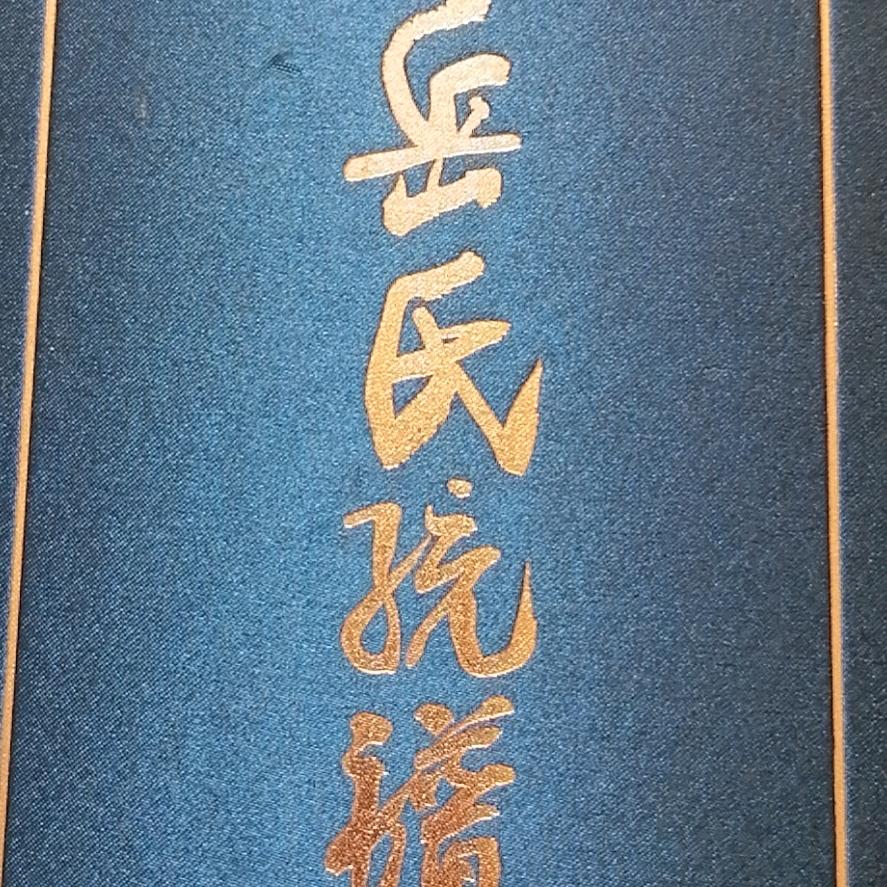 岳氏统谱